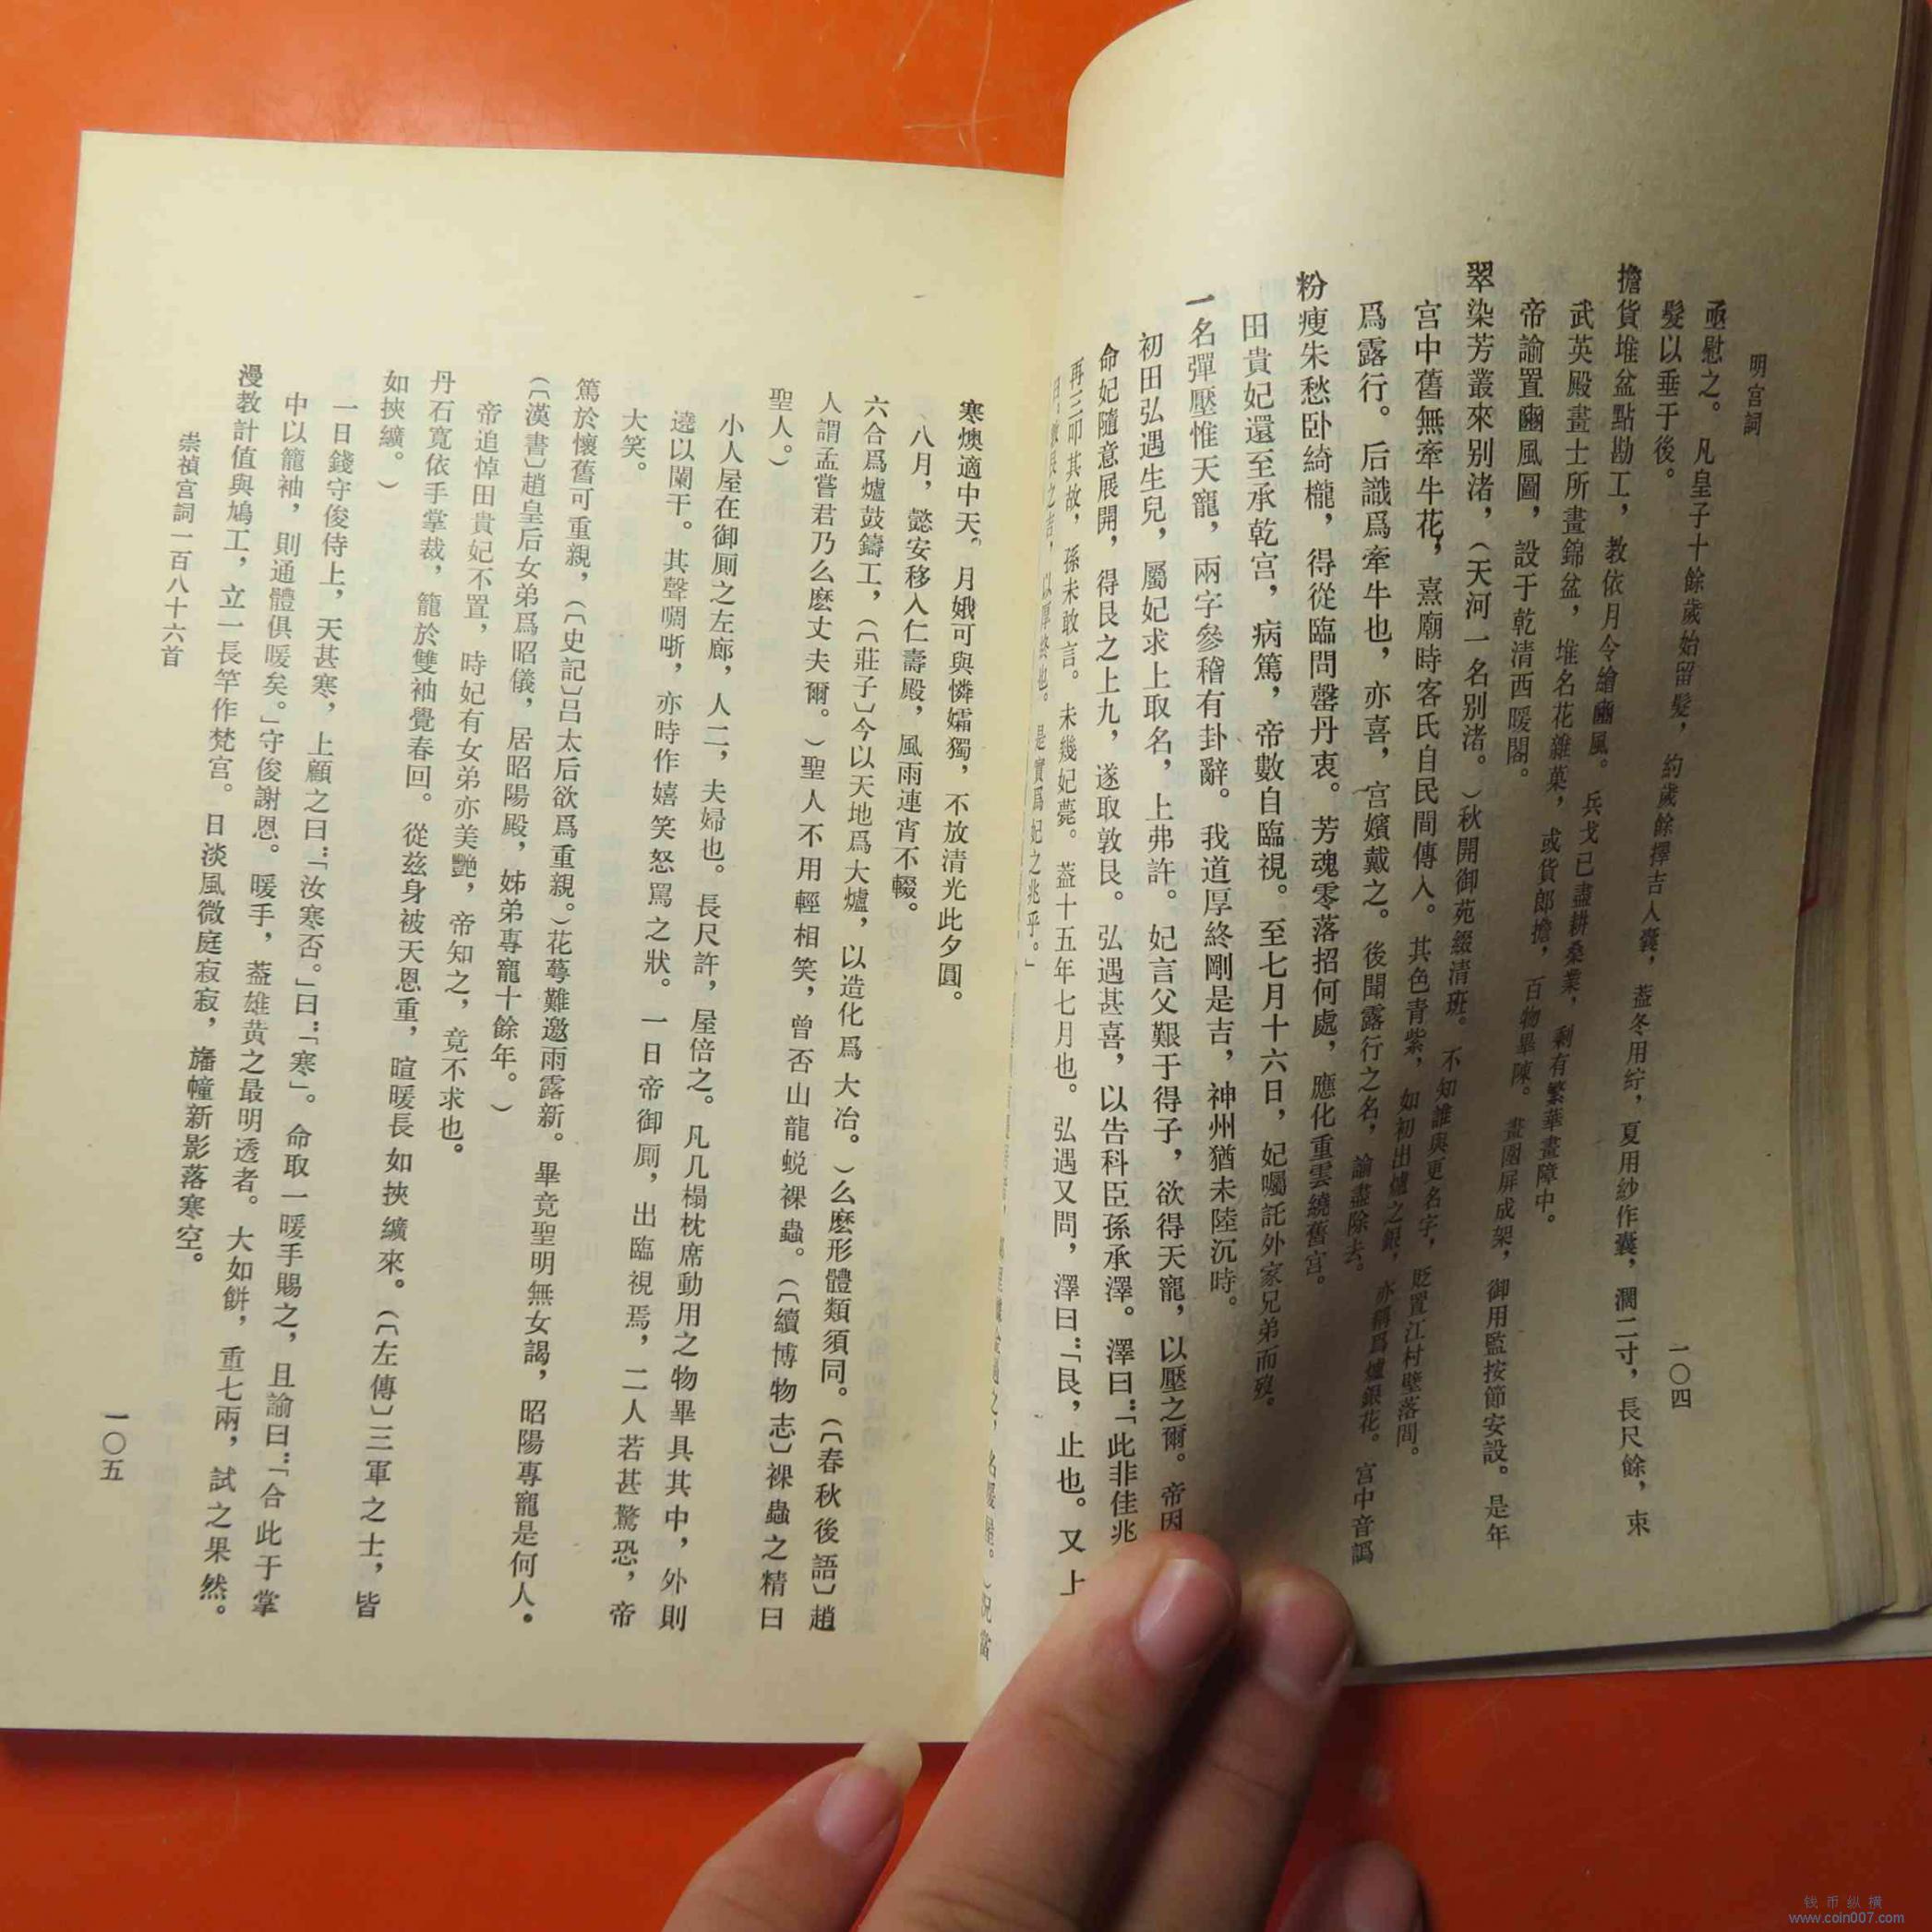 明宮詞
一〇四
亟慰之。凡皇子十餘歲始留髮，約歲餘擇吉入囊，葢冬用紵，夏用紗作囊，濶二寸，長尺餘，束
髮以垂于後。
擔貨堆盆點勘工，教依月令繪豳風。兵戈已盡耕桑業，剩有繁華畫障中。
武英殿畫士所畫錦盆，堆名花雜菓，或貨郎擔，百物畢陳。畫圍屏成架，御用監按節安設。是年
帝諭置豳風圖，設于乾清西暖閣。
翠染芳叢來別渚，（天河一名別渚。）秋開御苑綴清班。不知誰與更名字，貶置江村壁落間。
宮中舊無牽牛花，熹廟時客氏自民間傳入。其色青紫，如初出爐之銀，亦稱爲爐銀花。宮中音譌
爲露行。后識爲牽牛也，亦喜，宮嬪戴之。後聞露行之名，諭盡除去。
粉瘦朱愁卧綺櫳，得從臨問罄丹衷。芳魂零落招何處，應化重雲繞舊宮。
田貴妃還至承乾宮，病篤，帝數自臨視。至七月十六日，妃囑託外家兄弟而歿。
一名彈壓惟天寵，兩字參稽有卦辭。我道厚終剛是吉，神州猶未陸沉時。
初田弘遇生兒，屬妃求上取名，上弗許。妃言父艱于得子，欲得天寵，以壓之爾。帝因
命妃隨意展開，得艮之上九，遂取敦艮。弘遇甚喜，以告科臣孫承澤。澤曰：「此非佳兆
再三叩其故，孫未敢言。未幾妃薨。葢十五年七月也。弘遇又問，澤曰：「艮，止也。又上
敦艮之吉，以厚終也。是實爲妃之兆乎。」
名煖屋。）況當
寒燠適中天。月娥可與憐孀獨，不放清光此夕圓。
八月，懿安移入仁壽殿，風雨連宵不輟。
六合爲爐鼓鑄工，（〔莊子〕今以天地爲大爐，以造化爲大冶。）么麽形體類須同。（〔春秋後語〕趙
人謂孟嘗君乃么麽丈夫爾。）聖人不用輕相笑，曾否山龍蜕裸蟲。（〔續博物志〕裸蟲之精曰
聖人。）
小人屋在御厠之左廊，人二，夫婦也。長尺許，屋倍之。凡几榻枕席動用之物畢具其中，外則
遶以闌干。其聲啁哳，亦時作嬉笑怒罵之狀。一日帝御厠，出臨視焉，二人若甚驚恐，帝
大笑。
篤於懷舊可重親，（〔史記〕吕太后欲爲重親。）花蕚難邀雨露新。畢竟聖明無女謁，昭陽專寵是何人。
（〔漢書〕趙皇后女弟爲昭儀，居昭陽殿，姊弟專寵十餘年。）
帝追悼田貴妃不置，時妃有女弟亦美艷，帝知之，竟不求也。
丹石寬依手掌裁，籠於雙袖覺春回。從兹身被天恩重，暄暖長如挾纊來。（〔左傳〕三軍之士，皆
如挾纊。）
一日錢守俊侍上，天甚寒，上顧之曰：「汝寒否。」曰：「寒」。命取一暖手賜之，且諭曰：「合此于掌
中以籠袖，則通體俱暖矣。」守俊謝恩。暖手，葢雄黄之最明透者。大如餅，重七兩，試之果然。
漫教計值與鳩工，立一長竿作梵宮。日淡風微庭寂寂，旛幢新影落寒空。
崇禎宮詞一百八十六首
一〇五
钱币纵横
www.coin007.com